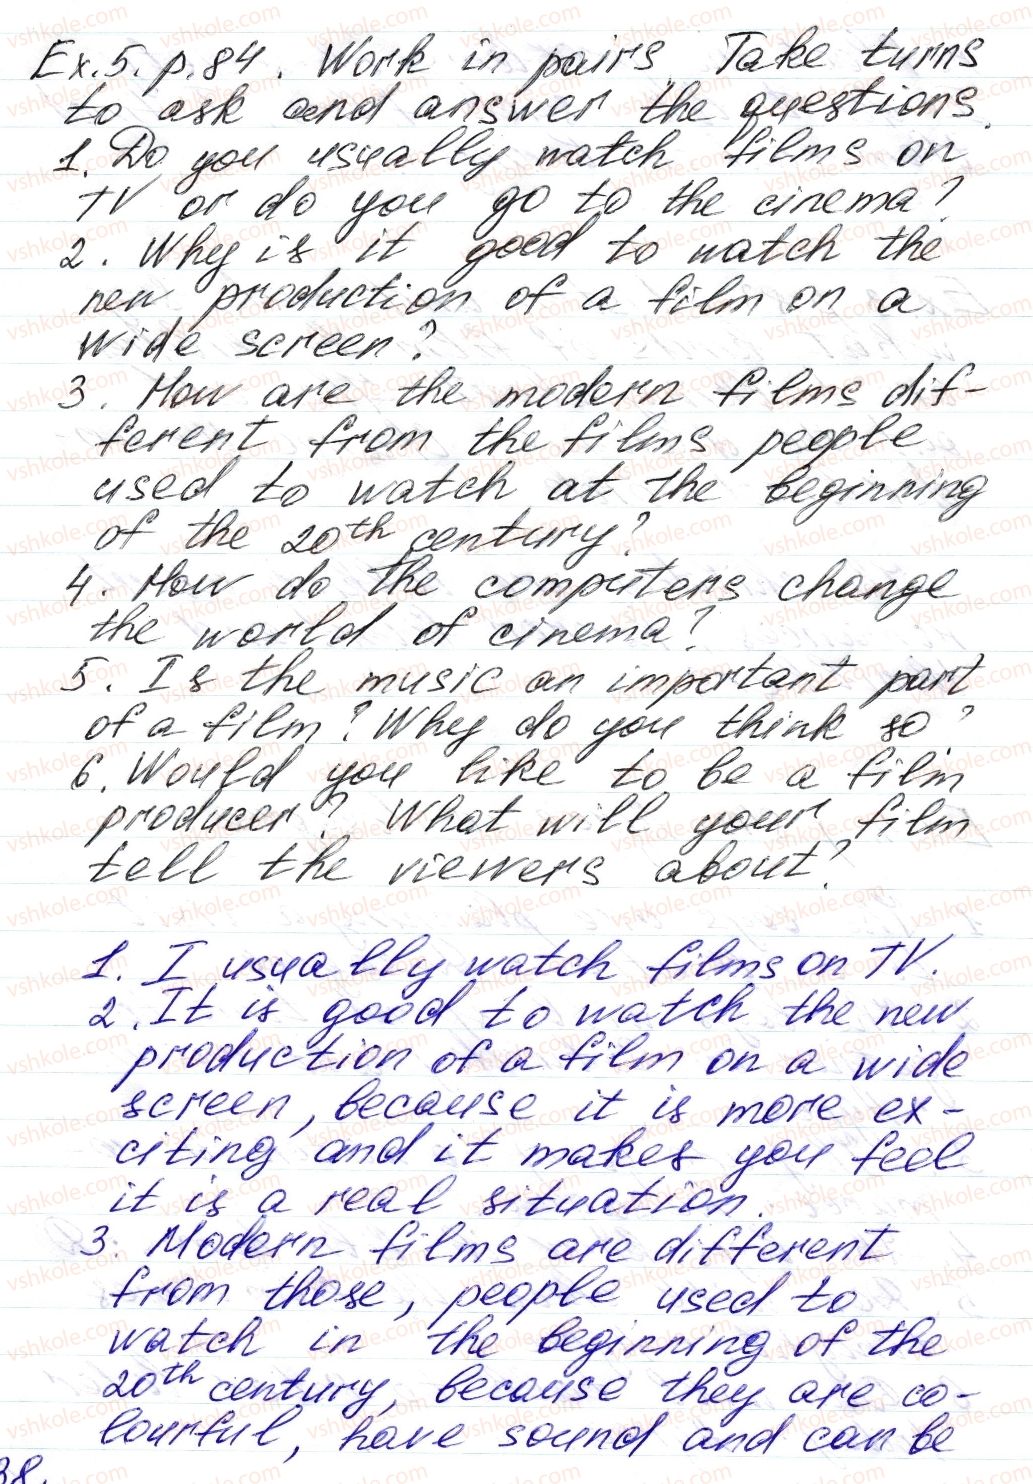 Ex.5. p.84. Work in pairs. Take turns
to ask and answer the questions.
1. Do you usually watch films on
TV or do you go to the cinema?
2. Why is it good to watch the
new production of a film on a
wide screen?
3. How are the modern films dif-
ferent from the films people
used to watch at the beginning
of the 20th century?
4. How do the computers change
the world of cinema?
5. Is the music an important part
of a film? Why do you think so?
6. Would you like to be a film
producer? What will your film
tell the viewers about?
1. I usually watch films on TV.
2. It is good to watch the new
production of a film on a wide
screen, because it is more ex-
citing and it makes you feel
it is a real situation.
3. Modern films are different
from those, people used to
watch in the beginning of the
20th century, because they are co-
lourful, have sound and can be
38.
vshkole.com